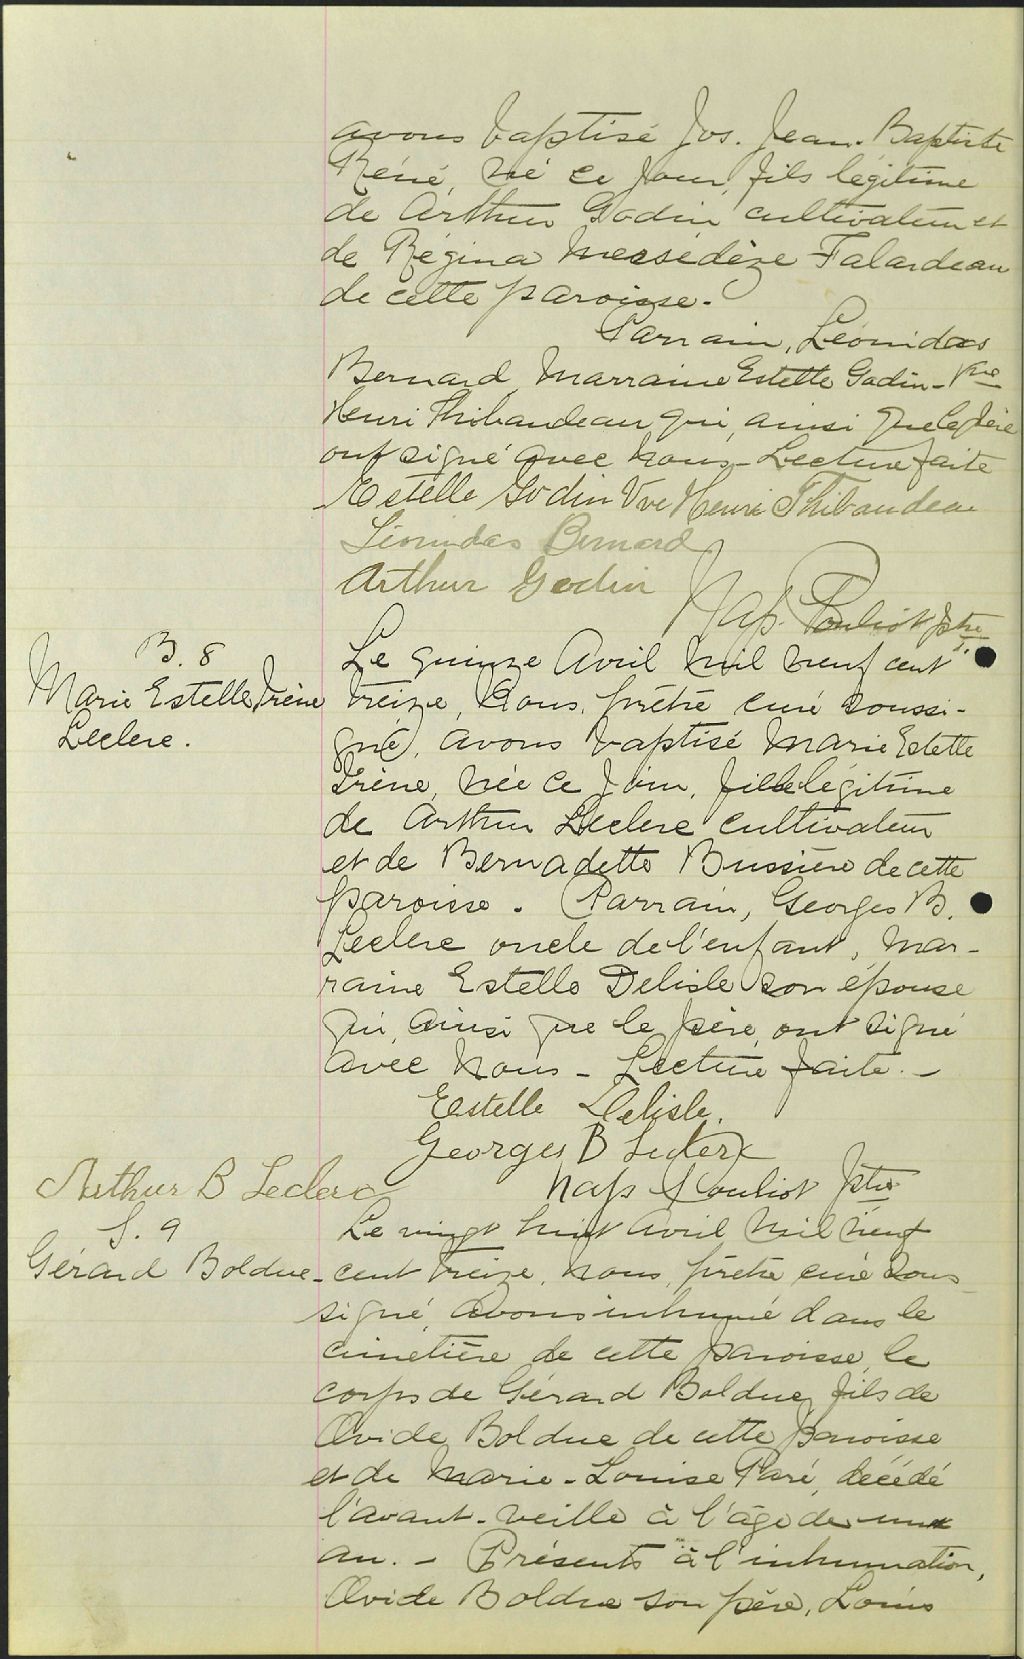 avons baptisé Jos. Jean-Baptiste
Réné, né ce jour, fils légitime
de Arthur Godin cultivateur et
de Régina Mersédèze Falardeau
de cette paroisse.
Parrain, Léonidas
Bernard, Marraine Estelle Godin - Vve
Henri Thibaudeau qui, ainsi que le père
ont signé avec nous - Lecture faite
Estelle Godin Vve Henri Thibaudeau
Léonidas Bernard
Arthur Godin
Nap. Pouliot Ptre
B. 8
Marie Estelle Irène
Leclerc.
Le quinze Avril mil neuf cent
treize, Nous, prêtre curé soussi-
gné, avons baptisé Marie Estelle
Irène, née ce jour, fille légitime
de Arthur Leclerc cultivateur
et de Bernadette Bussière de cette
paroisse. Parrain, Georges B.
Leclerc oncle de l'enfant, mar-
raine Estelle Delisle son épouse
qui, ainsi que le père, ont signé
avec Nous - Lecture faite. -
Estelle Delisle.
Georges B Leclerc
Arthur B Leclerc
Nap Pouliot Ptre
S. 9
Gérard Bolduc -
Le vingt huit avril mil neuf
cent treize, nous, prêtre curé sous-
signé, avons inhumé dans le
cimetière de cette paroisse, le
corps de Gérard Bolduc, fils de
Ovide Bolduc de cette paroisse
et de Marie-Louise Paré, décédé
l'avant-veille à l'âge de un
an. - Présents à l'inhumation,
Ovide Bolduc son père, Louis